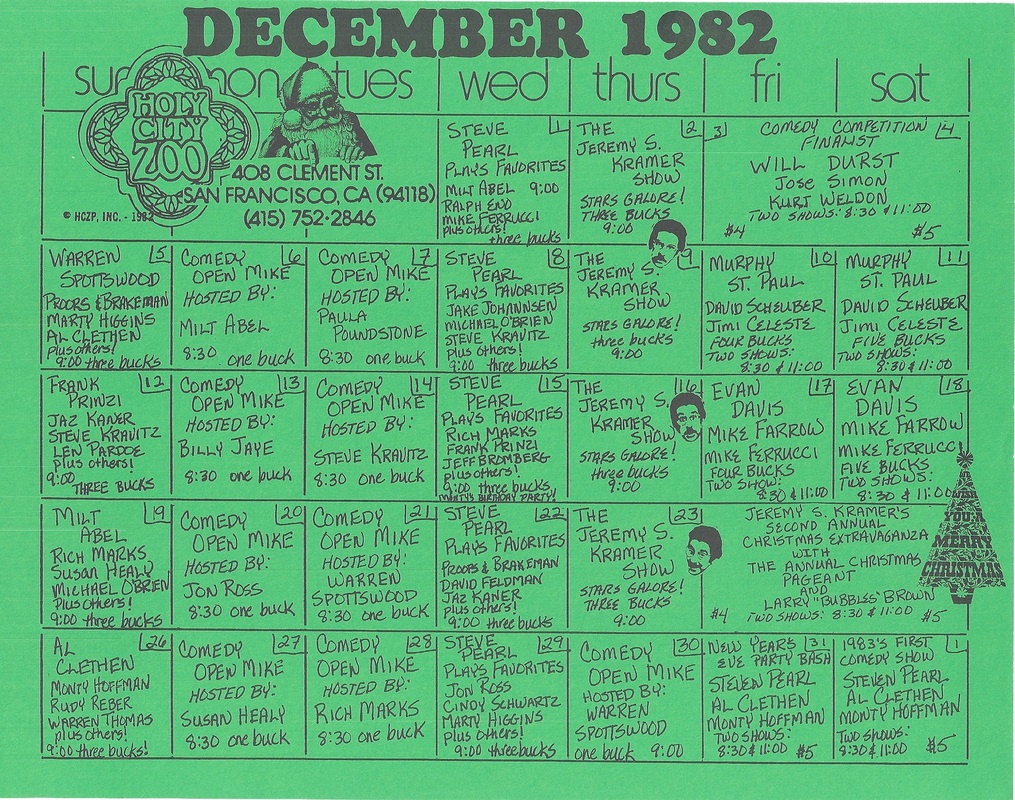 DECEMBER 1982
sun mon tues wed thurs fri sat
HOLY
CITY
ZOO
408 CLEMENT ST.
SAN FRANCISCO, CA (94118)
(415) 752-2846
© HCZP, INC. - 1982
STEVE 1
PEARL
PLAYS FAVORITES
MILT ABEL 9:00
RALPH ENO
MIKE FERRUCCI
plus others!
three bucks
THE 2
JEREMY S.
KRAMER
SHOW
STARS GALORE!
THREE BUCKS
9:00
3 COMEDY COMPETITION 4
FINALIST
WILL DURST
JOSE SIMON
KURT WELDON
TWO SHOWS: 8:30 & 11:00
$4 $5
WARREN 5
SPOTTSWOOD
PROOPS & BRAKEMAN
MARTY HIGGINS
AL CLETHEN
plus others!
9:00 three bucks
COMEDY 6
OPEN MIKE
HOSTED BY:
MILT ABEL
8:30 one buck
COMEDY 7
OPEN MIKE
HOSTED BY:
PAULA
POUNDSTONE
8:30 one buck
STEVE 8
PEARL
PLAYS FAVORITES
JAKE JOHANNSEN
MICHAEL O'BRIEN
STEVE KRAVITZ
plus others!
9:00 three bucks
THE 9
JEREMY S.
KRAMER
SHOW
STARS GALORE!
three bucks
9:00
MURPHY 10
ST. PAUL
DAVID SCHEUBER
JIMI CELESTE
FOUR BUCKS
TWO SHOWS:
8:30 & 11:00
MURPHY 11
ST. PAUL
DAVID SCHEUBER
JIMI CELESTE
FIVE BUCKS
TWO SHOWS:
8:30 & 11:00
FRANK 12
PRINZI
JAZ KANER
STEVE KRAVITZ
LEN PARDOE
plus others!
9:00
THREE BUCKS
COMEDY 13
OPEN MIKE
HOSTED BY:
BILLY JAYE
8:30 one buck
COMEDY 14
OPEN MIKE
HOSTED BY:
STEVE KRAVITZ
8:30 one buck
STEVE 15
PEARL
PLAYS FAVORITES
RICH MARKS
FRANK PRINZI
JEFF BROMBERG
plus others!
9:00 three bucks
MARTY'S BIRTHDAY PARTY!
THE 16
JEREMY S.
KRAMER
SHOW
STARS GALORE!
three bucks
9:00
EVAN 17
DAVIS
MIKE FARROW
MIKE FERRUCCI
FOUR BUCKS
TWO SHOW:
8:30 & 11:00
EVAN 18
DAVIS
MIKE FARROW
MIKE FERRUCCI
FIVE BUCKS
TWO SHOWS:
8:30 & 11:00
WISH
YOU A
MERRY
CHRISTMAS
MILT 19
ABEL
RICH MARKS
SUSAN HEALY
MICHAEL O'BRIEN
plus others!
9:00 three bucks
COMEDY 20
OPEN MIKE
HOSTED BY:
JON ROSS
8:30 one buck
COMEDY 21
OPEN MIKE
HOSTED BY:
WARREN
SPOTTSWOOD
8:30 one buck
STEVE 22
PEARL
PLAYS FAVORITES
PROOPS & BRAKEMAN
DAVID FELDMAN
JAZ KANER
plus others!
9:00 three bucks
THE 23
JEREMY S.
KRAMER
SHOW
STARS GALORE!
THREE BUCKS
9:00
JEREMY S. KRAMER'S
SECOND ANNUAL
CHRISTMAS EXTRAVAGANZA
WITH
THE ANNUAL CHRISTMAS
PAGEANT
AND
LARRY "BUBBLES" BROWN
$4 TWO SHOWS: 8:30 & 11:00 $5
AL 26
CLETHEN
MONTY HOFFMAN
RUDY REBER
WARREN THOMAS
plus others!
9:00 three bucks!
COMEDY 27
OPEN MIKE
HOSTED BY:
SUSAN HEALY
8:30 one buck
COMEDY 28
OPEN MIKE
HOSTED BY:
RICH MARKS
8:30 one buck
STEVE 29
PEARL
PLAYS FAVORITES
JON ROSS
CINDY SCHWARTZ
MARTY HIGGINS
plus others!
9:00 three bucks
COMEDY 30
OPEN MIKE
HOSTED BY:
WARREN
SPOTTSWOOD
one buck 9:00
NEW YEARS 31
EVE PARTY BASH
STEVEN PEARL
AL CLETHEN
MONTY HOFFMAN
TWO SHOWS:
8:30 & 11:00 $5
1983'S FIRST 1
COMEDY SHOW
STEVEN PEARL
AL CLETHEN
MONTY HOFFMAN
TWO SHOWS:
8:30 & 11:00 $5